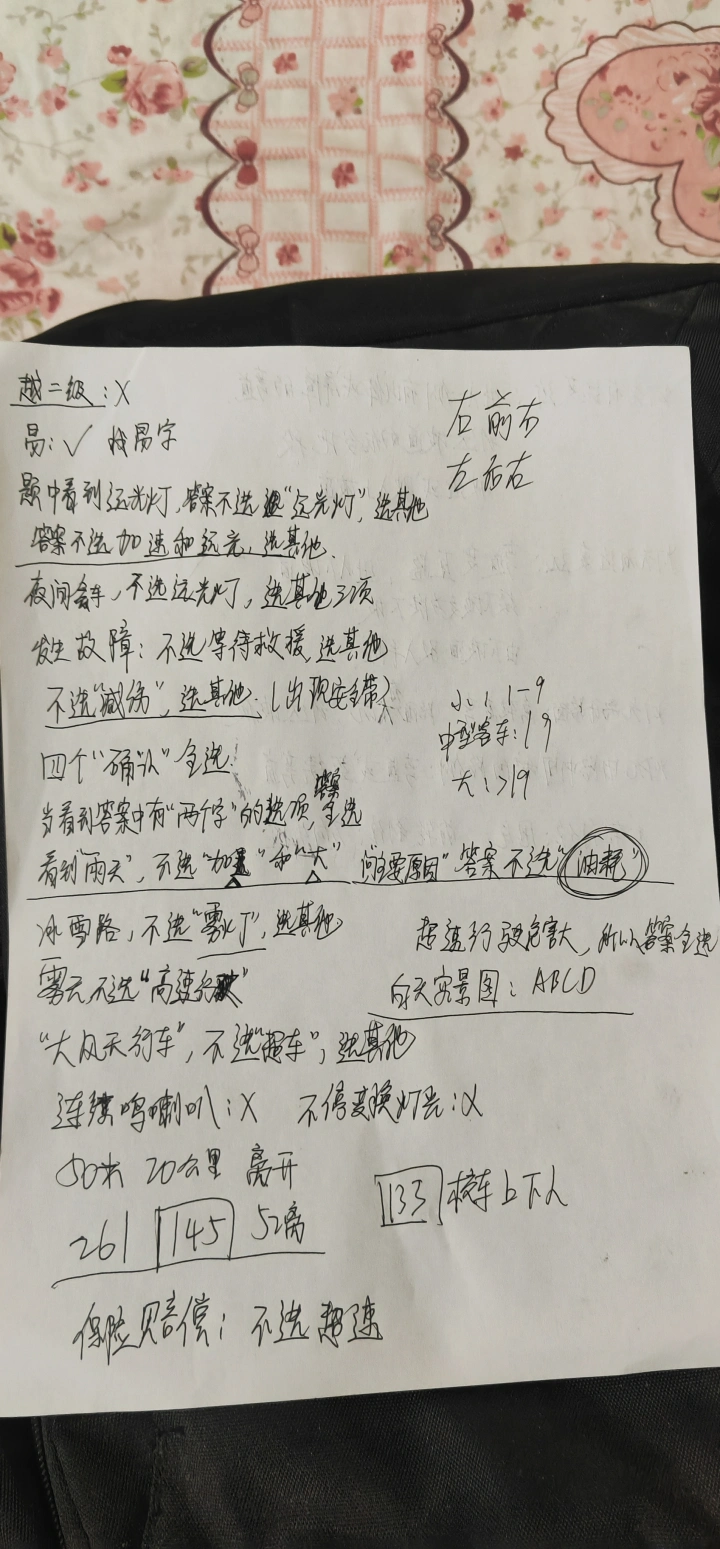 越二级：X
右前右
易：✓ 找易字
左后右
题中看到远光灯，答案不选"远光灯"，选其他
答案不选加速和远光，选其他.
夜间会车，不选远光灯，选其他3项
发生故障：不选等待救援，选其他
不选"减伤"，选其他.（出现安全带）
小：1-9
中型客车：19
四个"确认"全选
大：>19
当看到答案中有"两个字"的选项，答案全选
看到"雨天"，不选"加速"和"大" 问主要原因"答案不选"油耗"
冰雪路，不选"雾灯"，选其他
超速行驶危害大，所以答案全选
雾天，不选"高速行驶"
白天实景图：ABCD
"大风天行车"，不选"超车"，选其他
连续鸣喇叭：X 不停变换灯光：X
50米 20公里 离开
133 校车上下人
261 145 52离
保险赔偿：不选超速